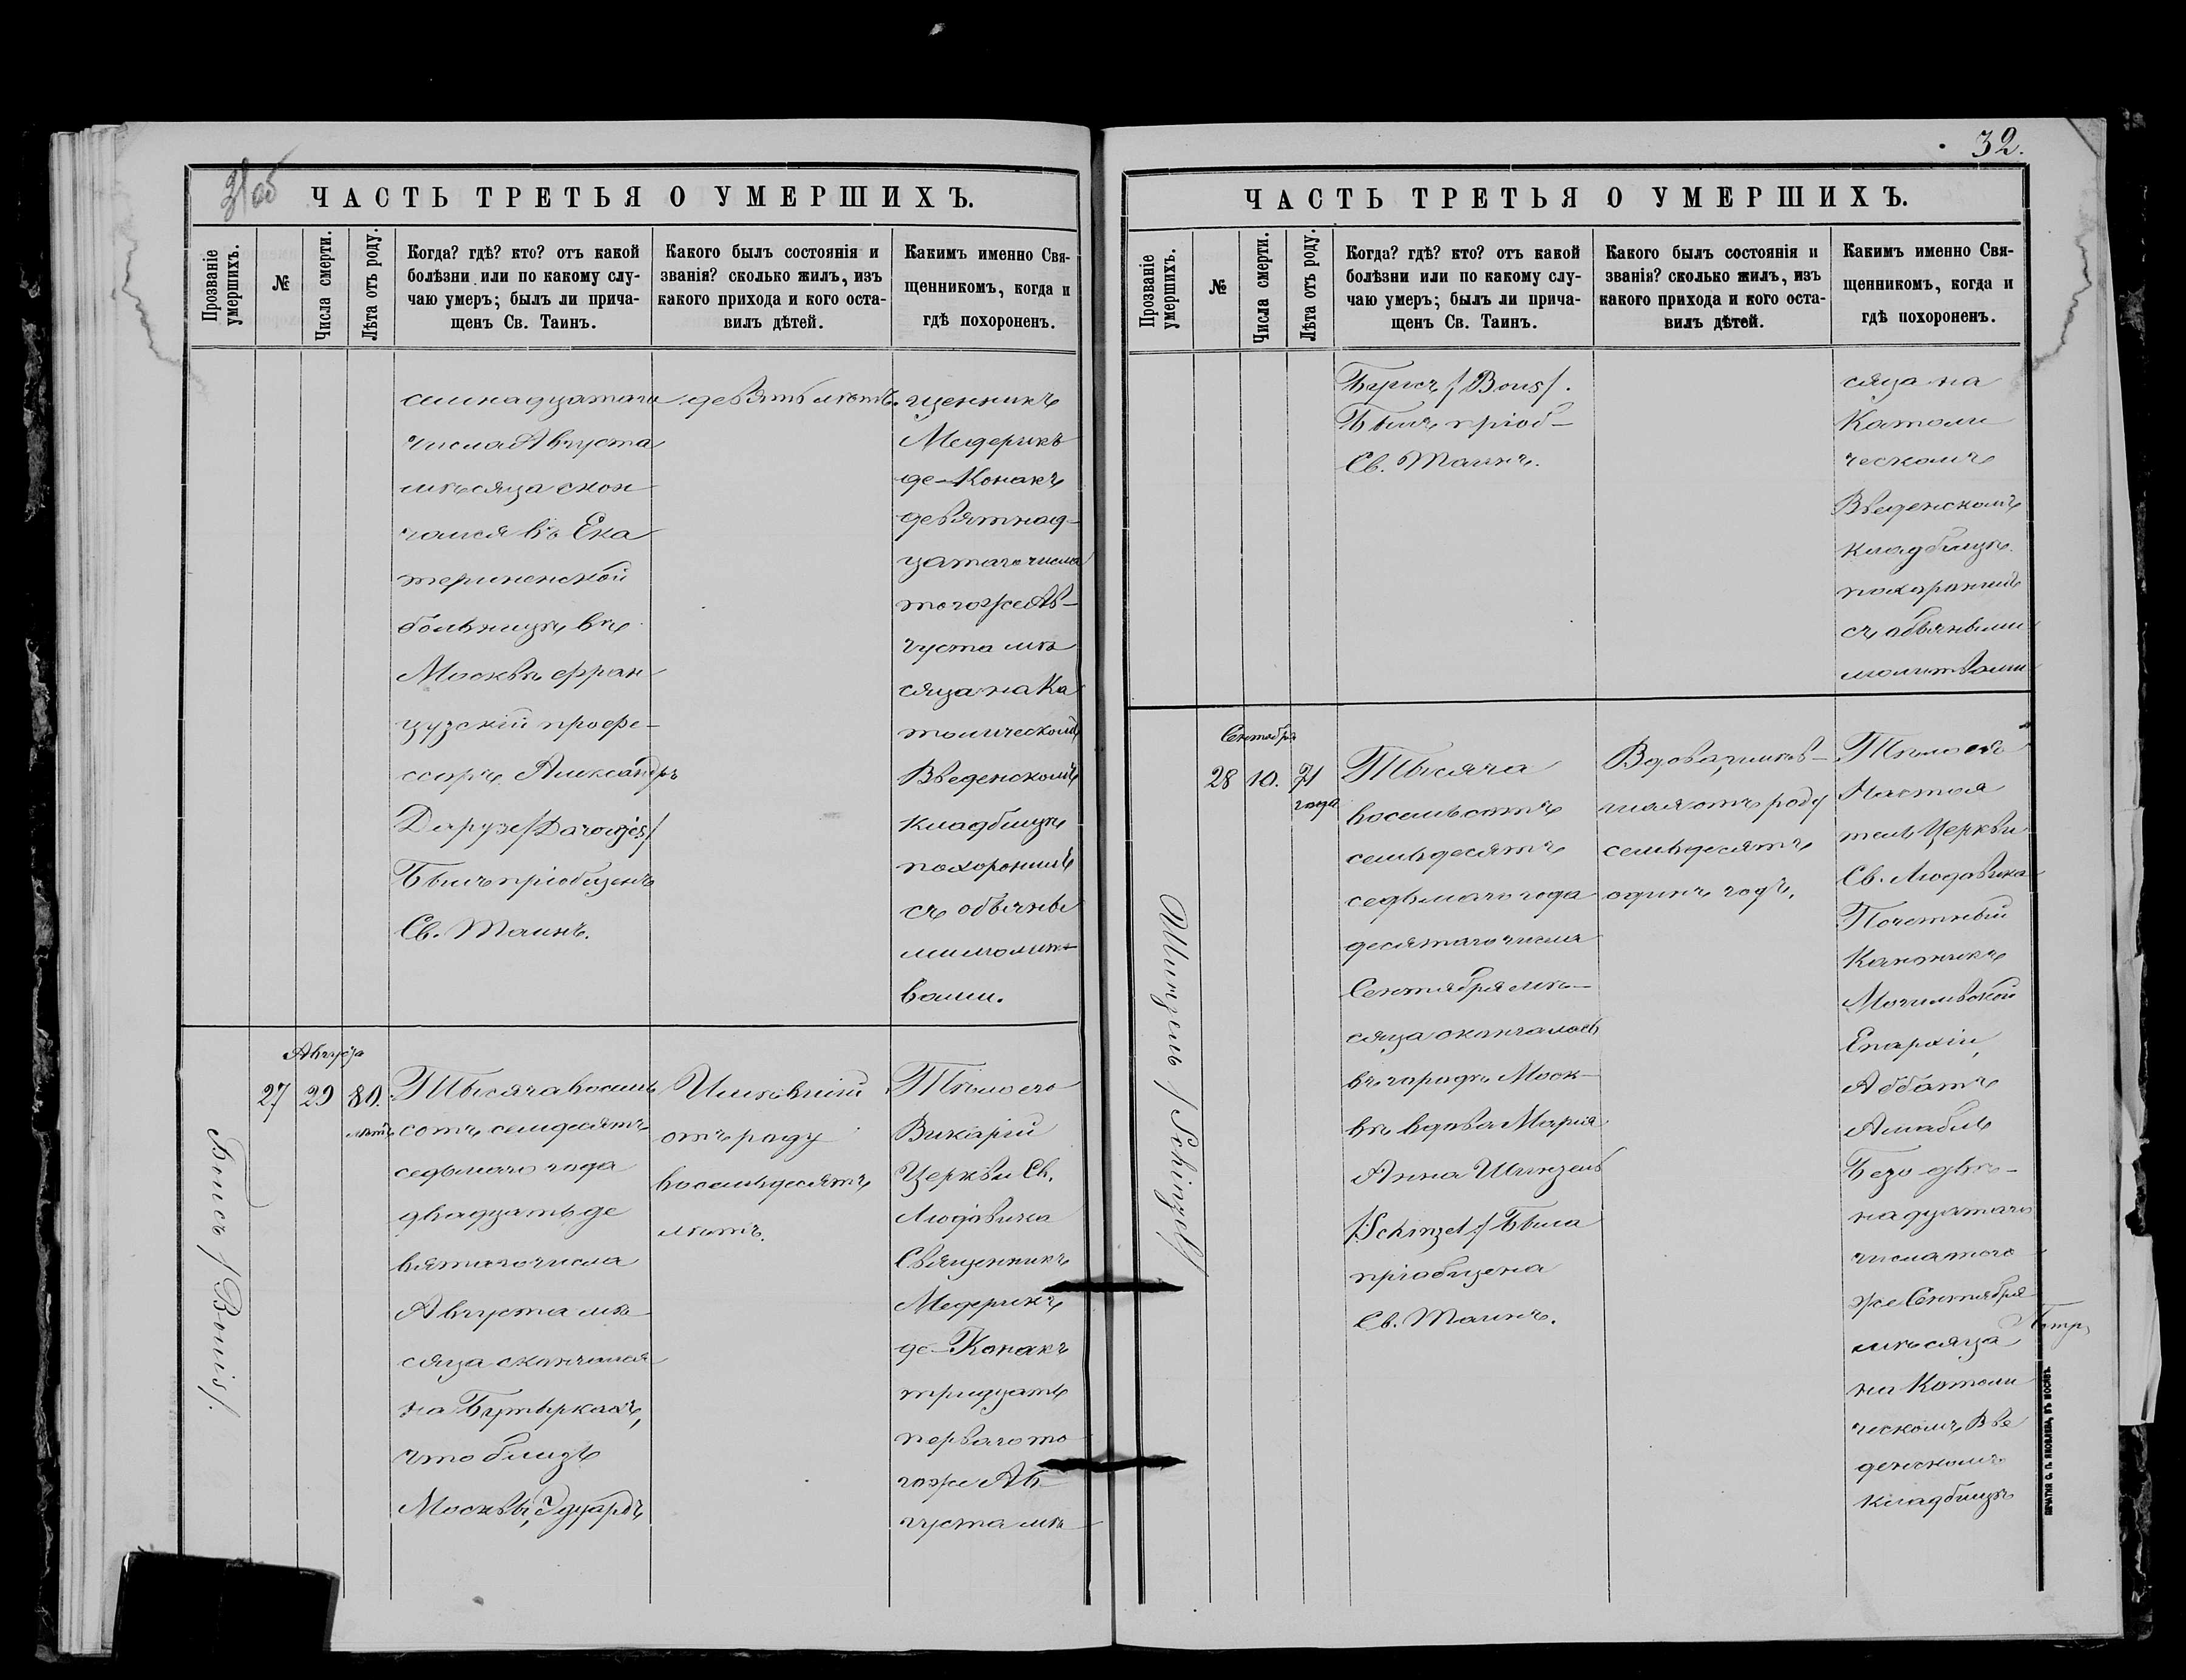 31об
ЧАСТЬ ТРЕТЬЯ О УМЕРШИХЪ.
Прозваніе умершихъ.
№
Числа смерти.
Лѣта отъ роду.
Когда? гдѣ? кто? отъ какой
болѣзни или по какому слу-
чаю умеръ; былъ ли прича-
щенъ Св. Таинъ.
Какого былъ состоянія и
званія? сколько жилъ, изъ
какого прихода и кого оста-
вилъ дѣтей.
Какимъ именно Свя-
щенникомъ, когда и
гдѣ похороненъ.
семнадцатаго
числа Августа
мѣсяца скон
чался въ Ека
терининской
больницѣ въ
Москвѣ фран
цузскій профе-
ссоръ Александръ
Дарузе /Darouzes/
Былъ пріобщенъ
Св. Таинъ.
девять лѣтъ.
щенникъ
Медерикъ
де-Конакъ
девятнад-
цатаго числа
тогоже Ав-
густа мѣ
сяца на Ка
толическомъ
Введенскомъ
кладбищѣ
похоронилъ
съ обычны
ми молит-
вами.
Боисъ / Bouis /.
Августа
27
29
80.
лѣтъ
Тысяча восемь
сотъ семдесятъ
седьмаго года
двадцать де
вятаго числа
Августа мѣ-
сяца скончался
на Бутыркахъ,
что близъ
Москвы, Эдуардъ
Имѣвшій
отъ роду
восемьдесятъ
лѣтъ.
Тѣло его
Викарій
Церкви Св.
Людовика
Священникъ
Медерикъ
де-Конакъ
тридцать
перваго то
гоже Ав-
густа мѣ
32.
ЧАСТЬ ТРЕТЬЯ О УМЕРШИХЪ.
Прозваніе умершихъ.
№
Числа смерти.
Лѣта отъ роду.
Когда? гдѣ? кто? отъ какой
болѣзни или по какому слу-
чаю умеръ; былъ ли прича-
щенъ Св. Таинъ.
Какого былъ состоянія и
званія? сколько жилъ, изъ
какого прихода и кого оста-
вилъ дѣтей.
Какимъ именно Свя-
щенникомъ, когда и
гдѣ похороненъ.
/Bouis/.
Былъ пріоб-
Св. Таинъ.
сяца на
Католи
ческомъ
Введенскомъ
кладбищѣ
похоронилъ
съ обычными
молитвами
Шинзель / Schinzel /
Сентября
28
10.
71
года
Тысяча
восемьсотъ
семьдесятъ
седьмаго года
десятаго числа
Сентября мѣ-
сяца скончалась
въ городѣ Моск-
вѣ вдова Марія
Анна Шинзель
/Schinzel/ Была
пріобщена
Св. Таинъ.
Вдова, имѣв-
шая отъ роду
семьдесятъ
одинъ годъ.
Тѣло ея
Настоя
тель Церкви
Св. Людовика
Почетный
Каноникъ
Могилевской
Епархіи,
Аббатъ
Амабль
Безо двѣ-
надцатаго
числа того
же Сентября
мѣсяца
на Католи
ческомъ Вве
денскомъ
кладбищѣ
ПЕЧАТНЯ С. П. ЯКОВЛЕВА, ВЪ МОСКВѢ.